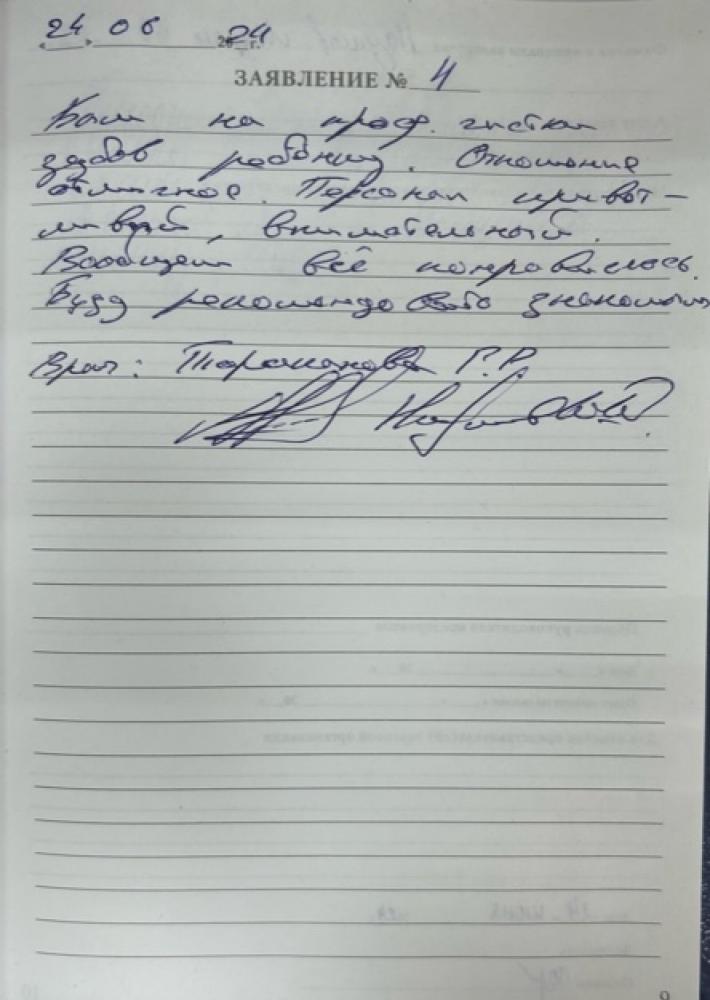 24 06 2024 г.
ЗАЯВЛЕНИЕ № 4
Были на проф. чистки
зубов ребёнку. Отношение
отличное. Персонал привет-
ливый, внимательный.
Вообщем всё понравилось.
Буду рекомендовать знакомым
Врач: Тараканова Г.Р.